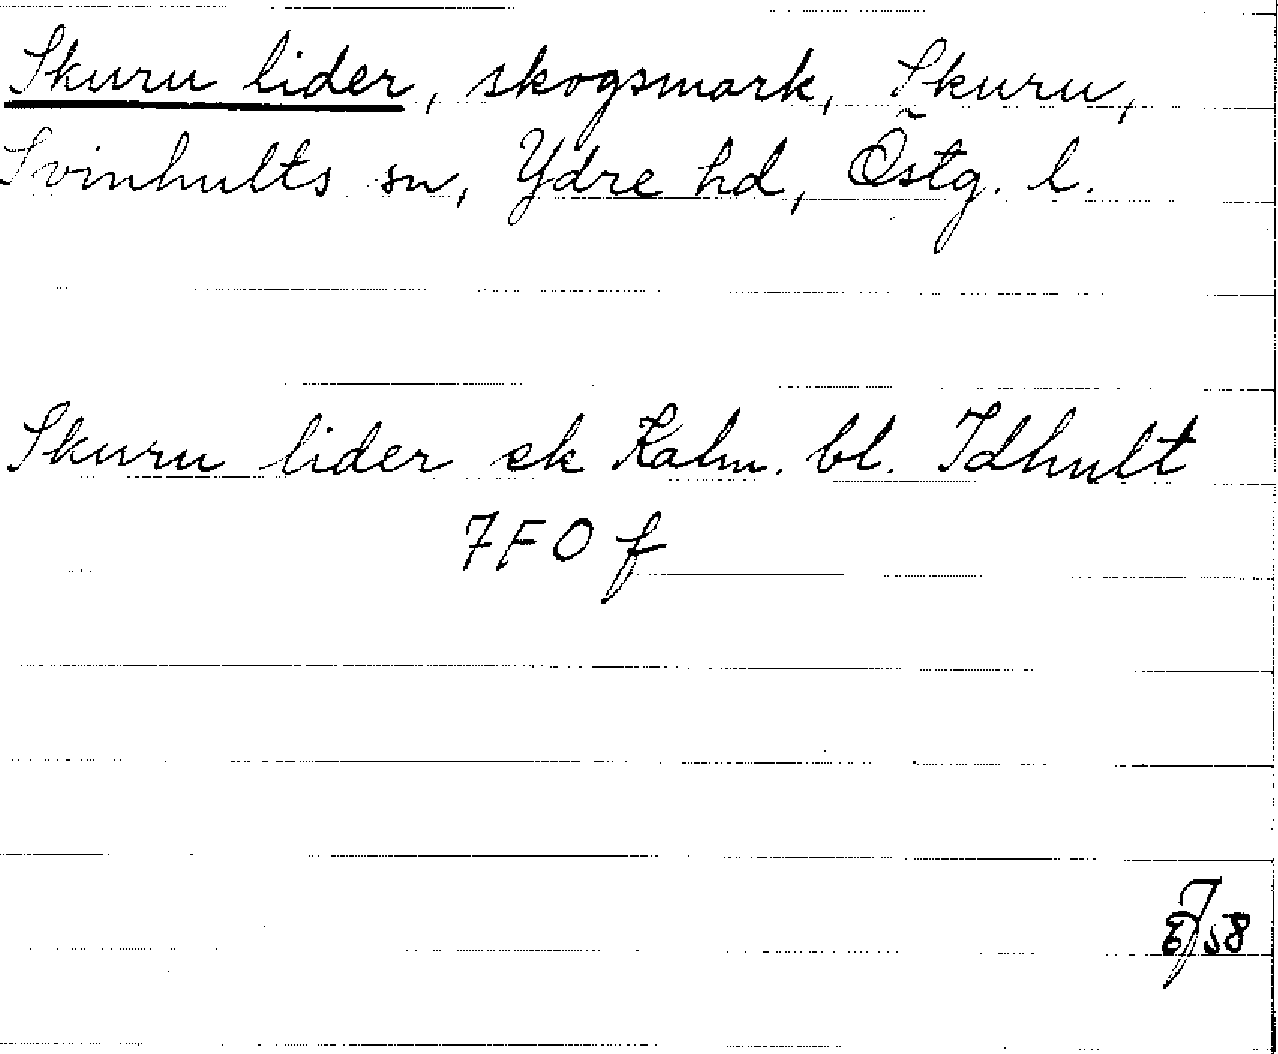 Skuru lider, skogsmark, Skuru,
Svinhults sn, Ydre hd, Östg. l.
Skuru lider ek Kalm. bl. Idhult
7F0f
58